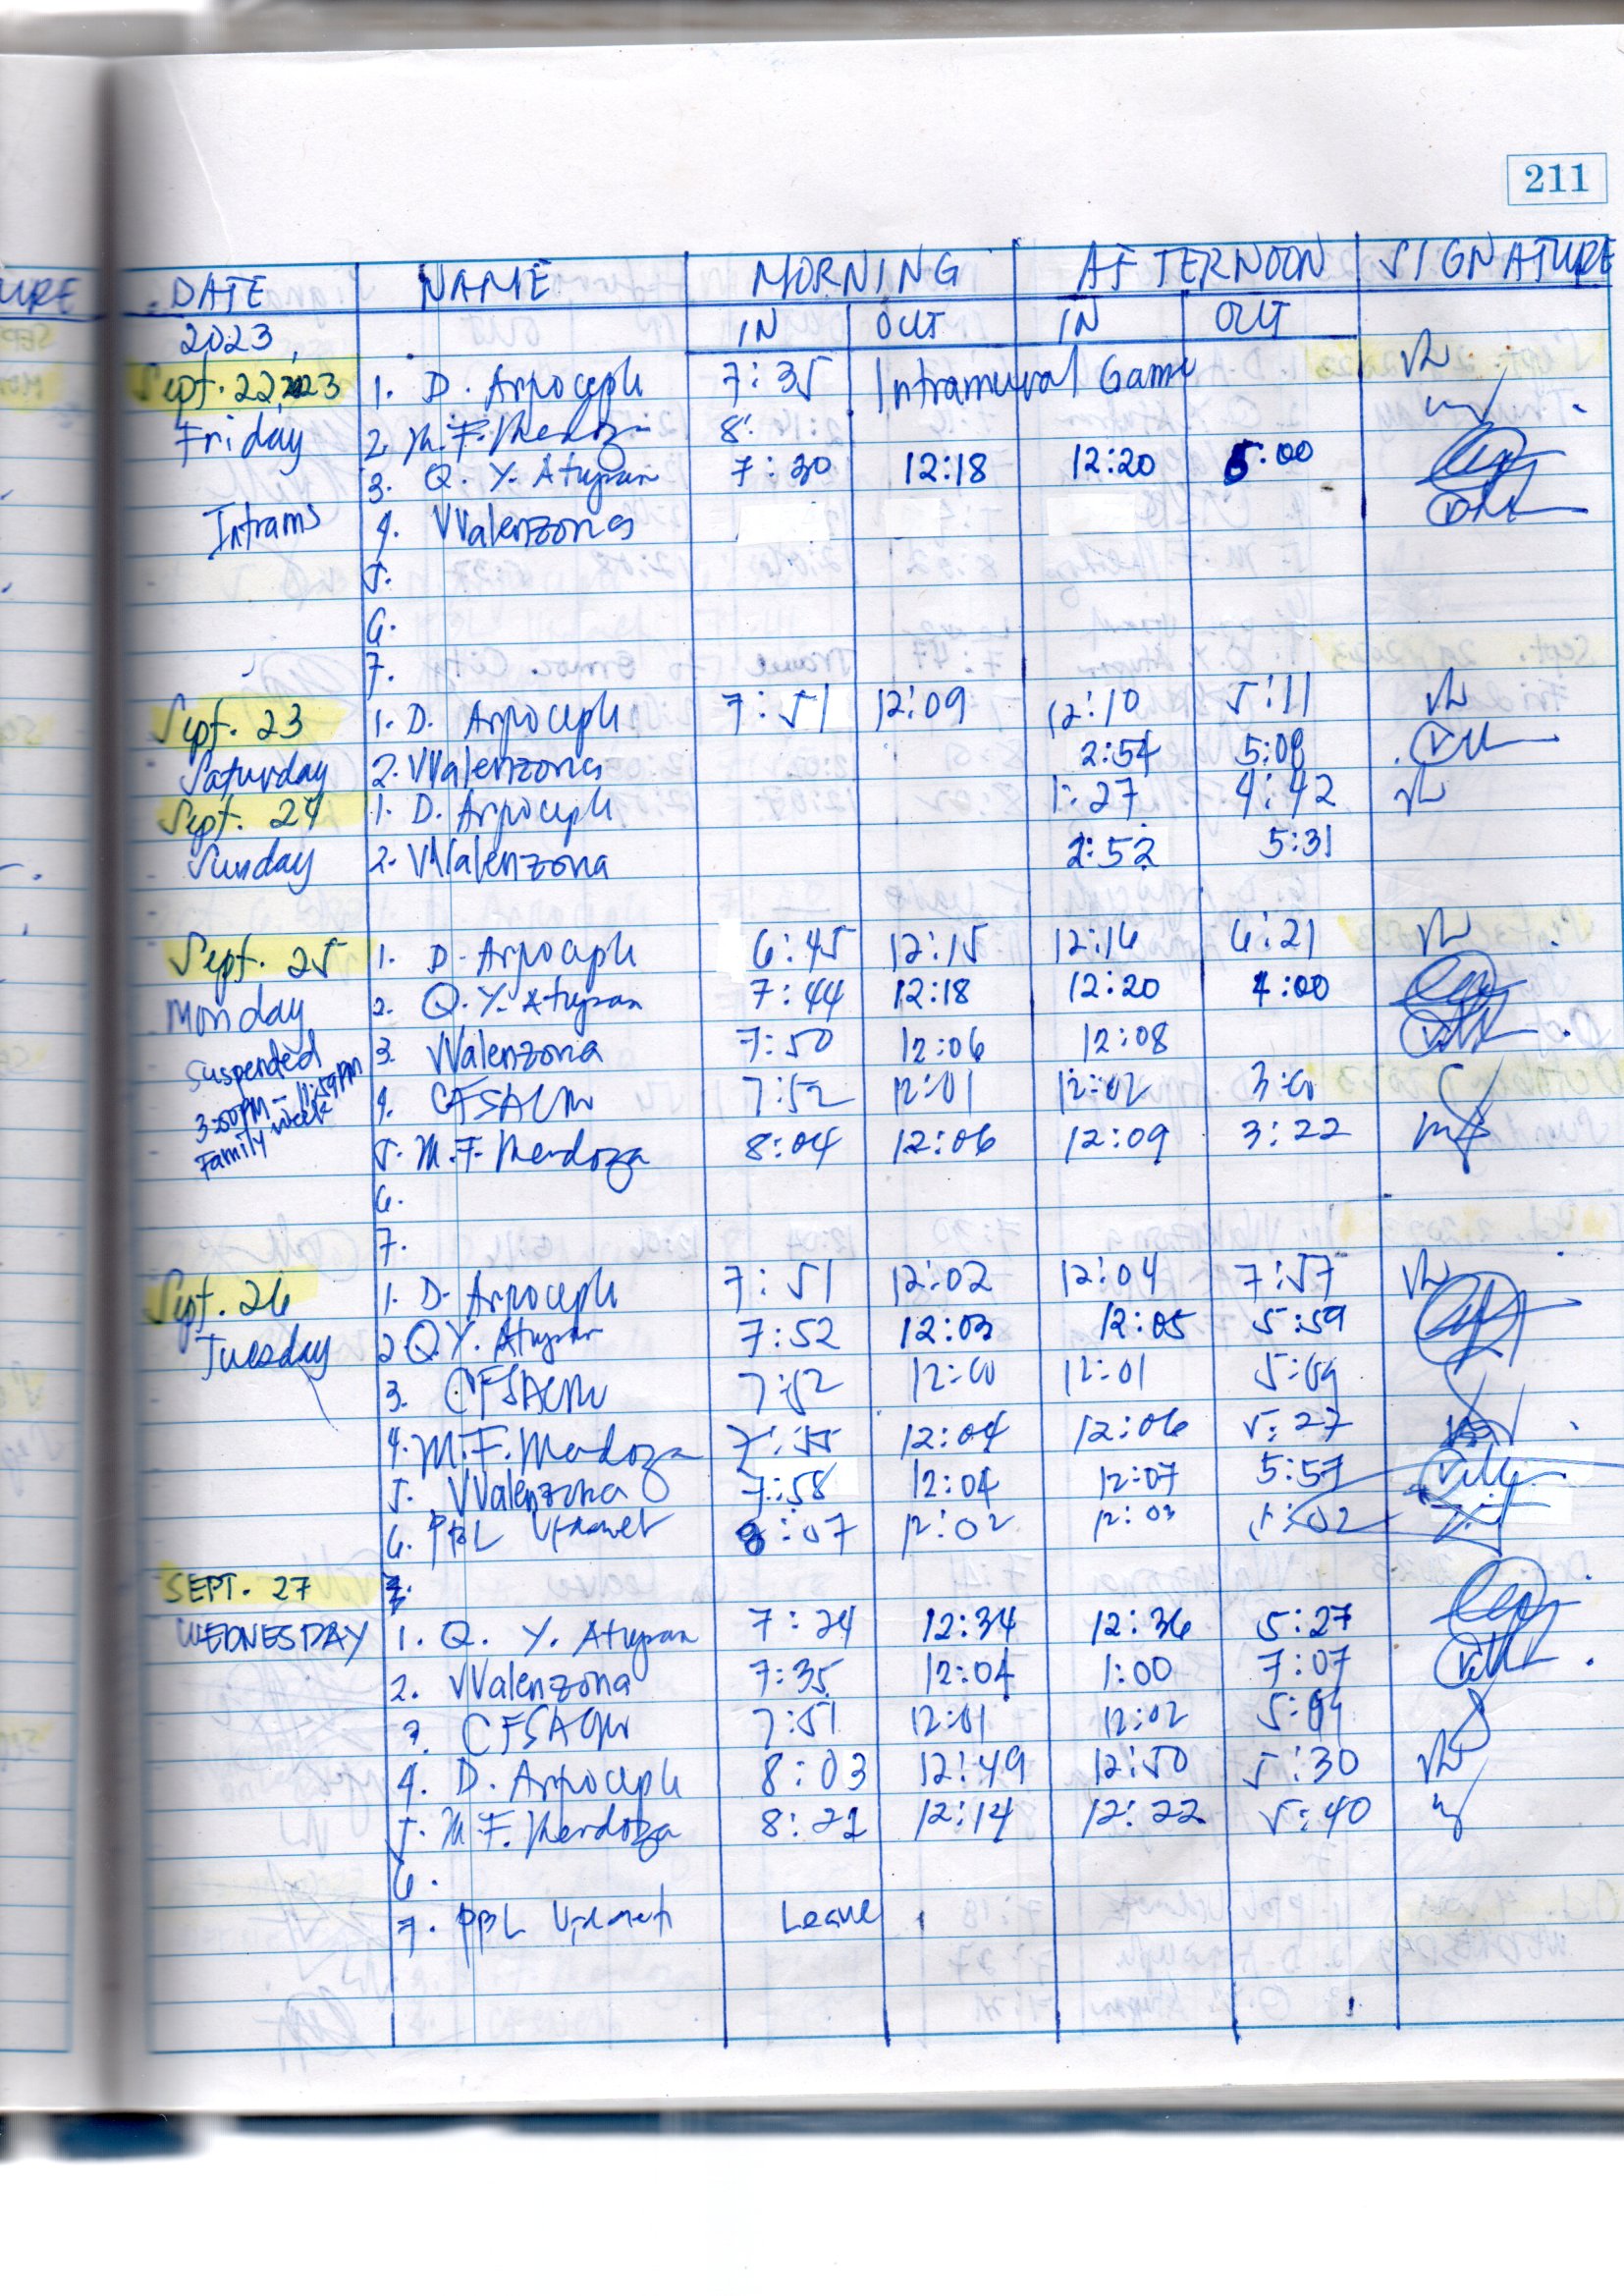 211
DATE NAME MORNING AFTERNOON SIGNATURE
2023, IN OUT IN OUT
Sept. 22, 2023 1. D. 7:35 Intramural Game
Friday 2. M.F. Mendoza 8:
3. Q. Y. Atupan 7:30 12:18 12:20 5:00
Intrams 4. VValenzona
5.
6.
7.
Sept. 23 1. D. 7:51 12:09 12:10 5:11
Saturday 2. VValenzona 2:54 5:08
Sept. 24 1. D. 1:27 4:42
Sunday 2. VValenzona 2:52 5:31
Sept. 25 1. D. 6:45 12:15 12:16 6:21
Monday 2. Q. Y. Atupan 7:44 12:18 12:20 4:00
Suspended 3. VValenzona 7:50 12:06 12:08
3:00PM - 11:59PM 4. 7:52 12:01 12:02
Family week 5. M.F. Mendoza 8:04 12:06 12:09 3:22
6.
7.
Sept. 26 1. D. 7:51 12:02 12:04 7:57
Tuesday 2. Q.Y. Atupan 7:52 12:03 12:05 5:59
3. 7:52 12:00 12:01
4. M.F. Mendoza 12:04 12:06 5:27
5. VValenzona 7:58 12:04 12:07 5:57
6. PBL 8:07 12:02 12:03 5:02
SEPT. 27 7.
WEDNESDAY 1. Q. Y. Atupan 7:24 12:34 12:36 5:27
2. VValenzona 7:35 12:04 1:00 7:07
3. 7:51 12:01 12:02
4. D. 8:03 12:49 12:50 5:30
5. M.F. Mendoza 8:21 12:14 12:22 5:40
6.
7. PBL Leave